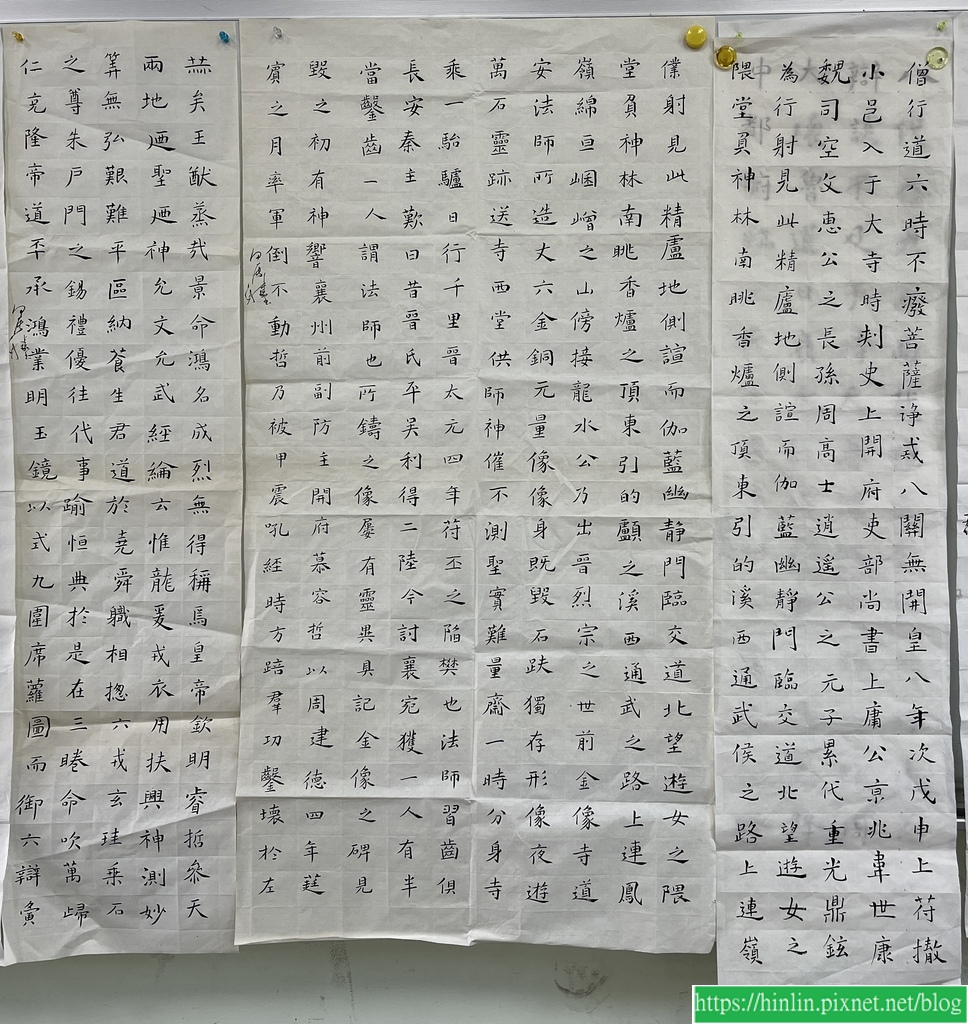 僧行道六時不癈菩薩诤戎八關無開皇八年次戊申上苻撤
小邑入于大寺時刾史上開府吏部尚書上庸公京兆韋世康
魏司空文惠公之長孫周高士逍遥公之元子累代重光鼎鉉
為行射見此精廬地側諠而伽藍幽靜門臨交道北望遊女之
隈堂負神林南眺香爐之頂東引的溪西通武侯之路上連嶺
僕射見此精盧地側諠而伽藍幽靜門臨交道北望遊女之隈
堂負神林南眺香爐之頂東引的顱之溪西通武之路上連鳳
嶺綿亘崓嶒之山傍接龍水公乃出晉烈宗之世前金像寺道
安法師所造丈六金銅元量像像身既毀石趺獨存形像夜遊
萬石靈跡送寺西堂供師神催不測聖實難量齋一時分身寺
乘一駘驢日行千里晉太元四年苻丕之陥樊也法師習齒俱
長安秦主歎曰昔晉氏平吴利得二陸今討襄宛獲一人有半
當鑿齒一人謂法師也所鑄之像屢有靈異具記金像之碑見
毀之初有神響襄州前副防主開府慕容哲以周建德四年莚
賓之月率軍倒不動哲乃被甲震吼經時方踣羣功鑿壊於左
燕矣王猷蒸哉景命鴻名成烈無得稱焉皇帝欽明睿哲叅天
兩地迺聖迺神允文允武經綸云惟龍爰戎衣用扶興神測妙
筭無弘艱難平區納蒼生君道於堯舜職相揔六戎玄珪乗石
之尊朱戸門之錫禮優往代事踰恒典於是在三睠命吹萬歸
仁克隆帝道丕承鴻業明玉鏡以式九圍席蘿圖而御六辯彙
https://hinlin.pixnet.net/blog